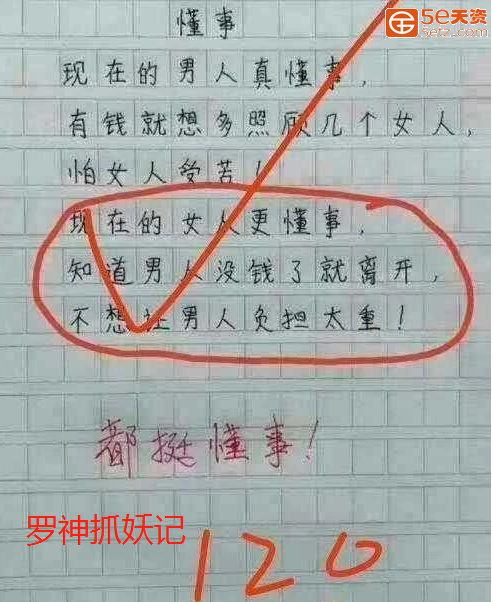 5e天资
5etz.com
懂事
现在的男人真懂事，
有钱就想多照顾几个女人，
怕女人受苦！
现在的女人更懂事，
知道男人没钱了就离开，
不想让男人负担太重！
都挺懂事！
罗神抓妖记
120